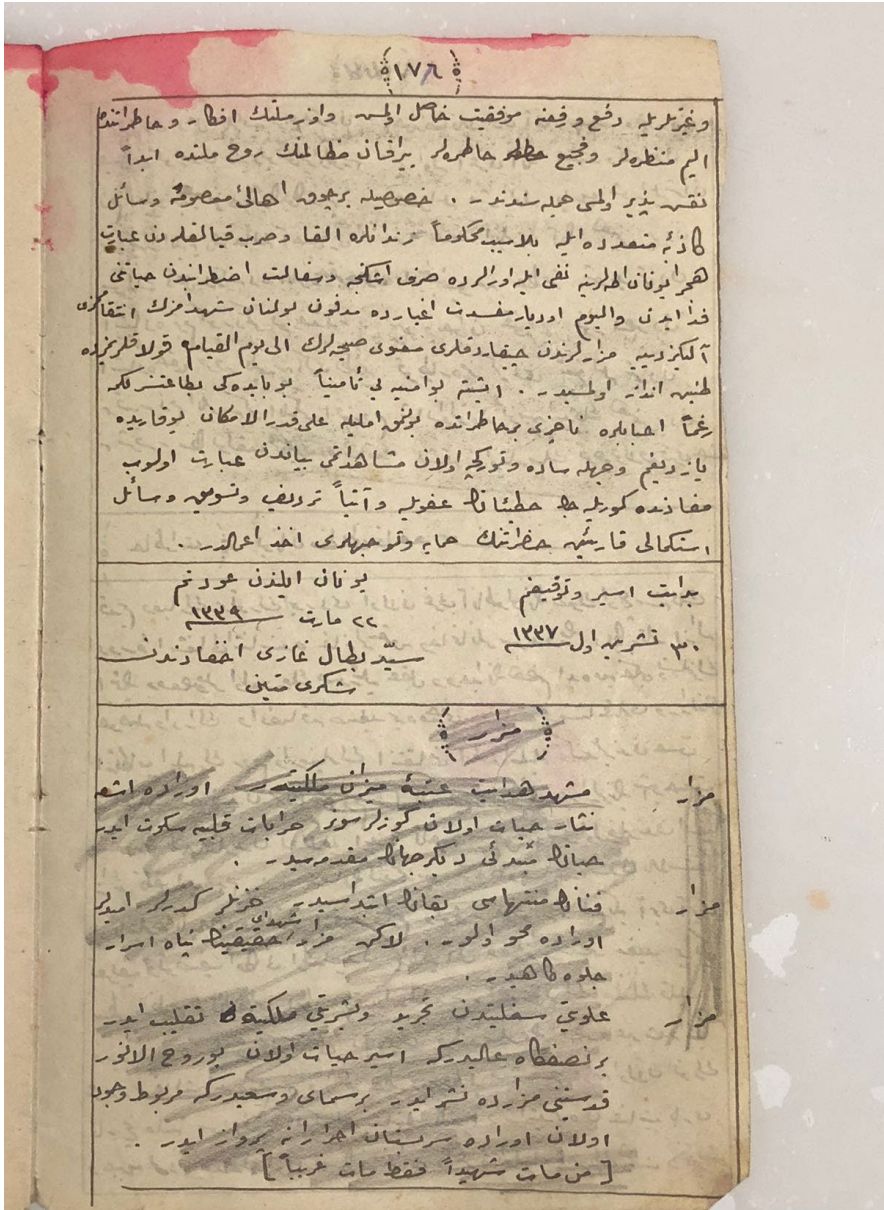 ١٧٦
وغيرتلريله دفع ورفعنه موفقيت حاصل اولمش واوز ملتك افكار وخاطراتنده
اليم منظره لر وفجيع خاطره لر بيراقان مظالمنك روح ملتده ابداً
نقش پذير اولمسى جمله سندندر . خصوصيله برچوق اهالئ معصومه وسائل
كاذبهٔ متعدده ايله بلاسبب محكوماً زندانلره القا وصرب قيالقلردن عبارت
هجرا يونان اطه لرينه نفى ايله اورالرده صرف اشكنجه وسفالت اضطراندن حياتنى
فدا ايدن واليوم او ديار مفسدت اغيارده مدفون بولنان شهدامزك انتقاممزى
آليكز دييه مزارلرندن چيقاردقلرى معنوى صيحه لرك الى يوم القيام قولاقلريمزده
طنين انداز اولمسيدر . ايشته بو امنيه يى تأميناً بو بابده كى بضاعتسزلكمه
رغماً احبابلره ناچيزى بر خاطراتده بولنمق امليله على قدر الامكان يوقاريده
يازديغم وجهله ساده وتوركجه اولان مشاهداتمى بياندن عبارت اولوب
مفادنده كوريله جك خطيئاتك عفويله وآتياً ترديف وتسويق وسائل
استكمالى قارئين حضراتنك حمايه وتوجهلرى اخذ اعمالدر .
بدايت اسير وتوقيفم
٣٠ تشرين اول ١٣٣٧
يونان ايلندن عودتم
٢٢ مارت ١٣٣٩
سيد بطال غازى احفادندن
شكرى متين
مزار
مزار مشهد هدايت عتبهٔ ميزان ملكيتدر اوراده اشعه
نثار حيات اولان كوزلر سونر خرابات قلبيه سكوت ايدر
حياتك مبدئى ديكر جهانك مقدمه سيدر .
مزار فنانك منتهاسى بقانك ابتداسيدر خزنلر كدرلر اميدلر
اوراده محو اولور . لاكن مزار شهداى حقيقينك پناه اسرار
جلوه كاهيدر .
مزار علويتى سفليتدن تجريد وبشريتى ملكيته تقليب ايدر
بر نصفكاه عاليدركه اسير حيات اولان بو روح الانور
قدسيتنى مزارده نشر ايدر بر سماى وسعيدركه مربوط وجود
اولان اوراده سربستان احرارانه پرواز ايدر .
[ من مات شهيداً فقط مات غريباً ]